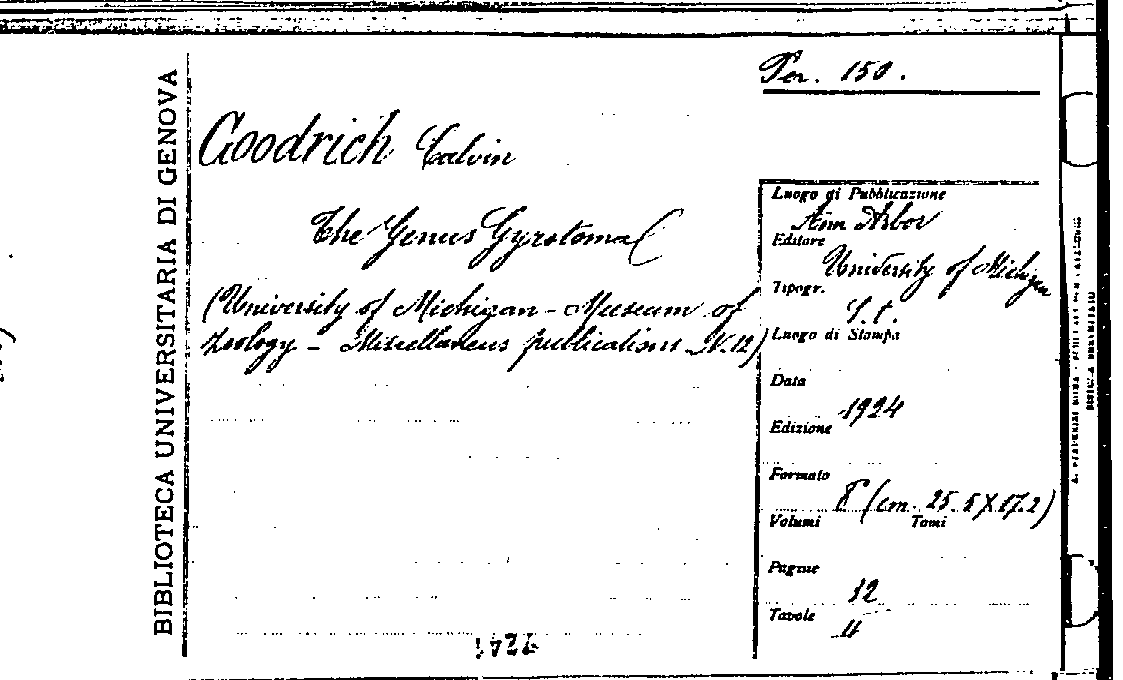 BIBLIOTECA UNIVERSITARIA DI GENOVA
Per. 150.
Goodrich Calvin
The Genus Gyrotoma
(University of Michigan - Museum of
Zoology - Miscellaneus publications N. 12)
Luogo di Pubblicazione
Ann Arbor
Editore
University of Michigan
Tipogr.
S.t.
Luogo di Stampa
Data
1924
Edizione
Formato
8° (cm. 25.5 X 17.2)
Volumi Tomi
Pagine
12
Tavole
II